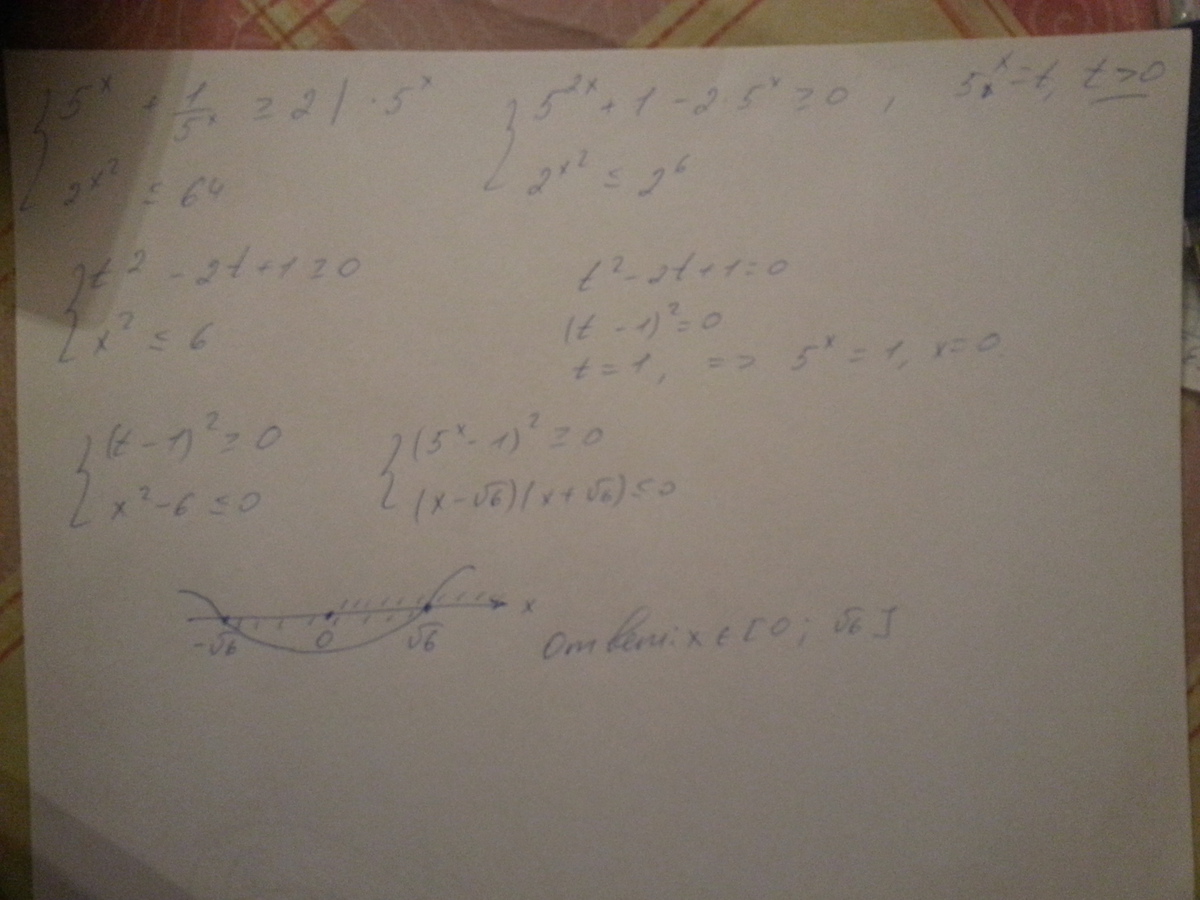 { 5^x + 1/5^x ≥ 2 | · 5^x
2^(x^2) ≤ 64
{ 5^(2x) + 1 - 2 · 5^x ≥ 0 ,
2^(x^2) ≤ 2^6
5^x = t, t > 0
{ t^2 - 2t + 1 ≥ 0
x^2 ≤ 6
t^2 - 2t + 1 = 0
(t - 1)^2 = 0
t = 1, => 5^x = 1, x = 0
{ (t - 1)^2 ≥ 0
x^2 - 6 ≤ 0
{ (5^x - 1)^2 ≥ 0
(x - √6)(x + √6) ≤ 0
-√6 0 √6 x
Ответ: x ∈ [0 ; √6]